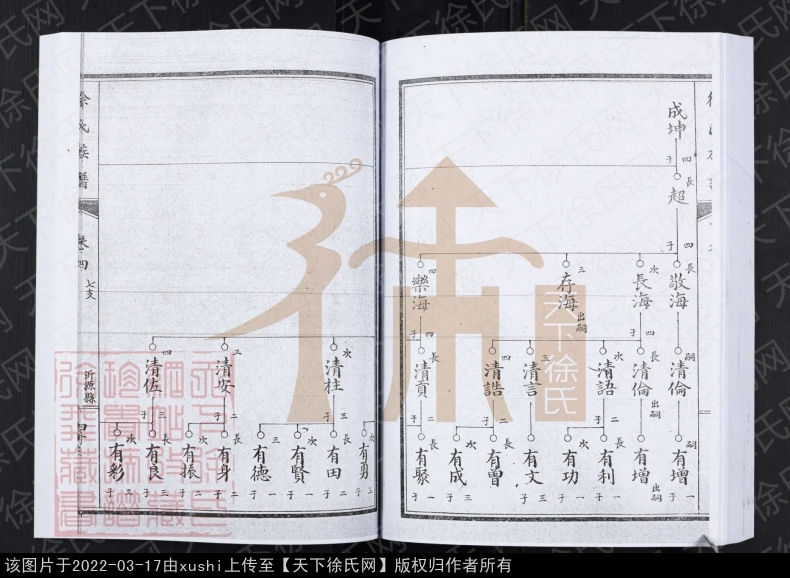 成坤
四子
長
超
四子
長
敬海
嗣
清倫
嗣
有增
一子
次
長海
四子
長
清倫
出嗣
有增
出嗣
次
清語
二子
長
有利
一子
次
有功
二子
三
清言
三子
有文
三子
四
清誥
二子
長
有曾
三子
次
有成
二子
三
存海
出嗣
四
樂海
四子
長
清貢
一子
長
有聚
一子
有勇
三子
次
清柱
三子
長
有田
二子
次
有賢
一子
三
有德
一子
三
清安
二子
長
有身
二子
次
有振
二子
四
清佐
三子
長
有良
三子
次
有彩
三子
徐氏族譜
卷四
七支
沂源縣
天下徐氏
该图片于2022-03-17由xushi上传至【天下徐氏网】版权归作者所有